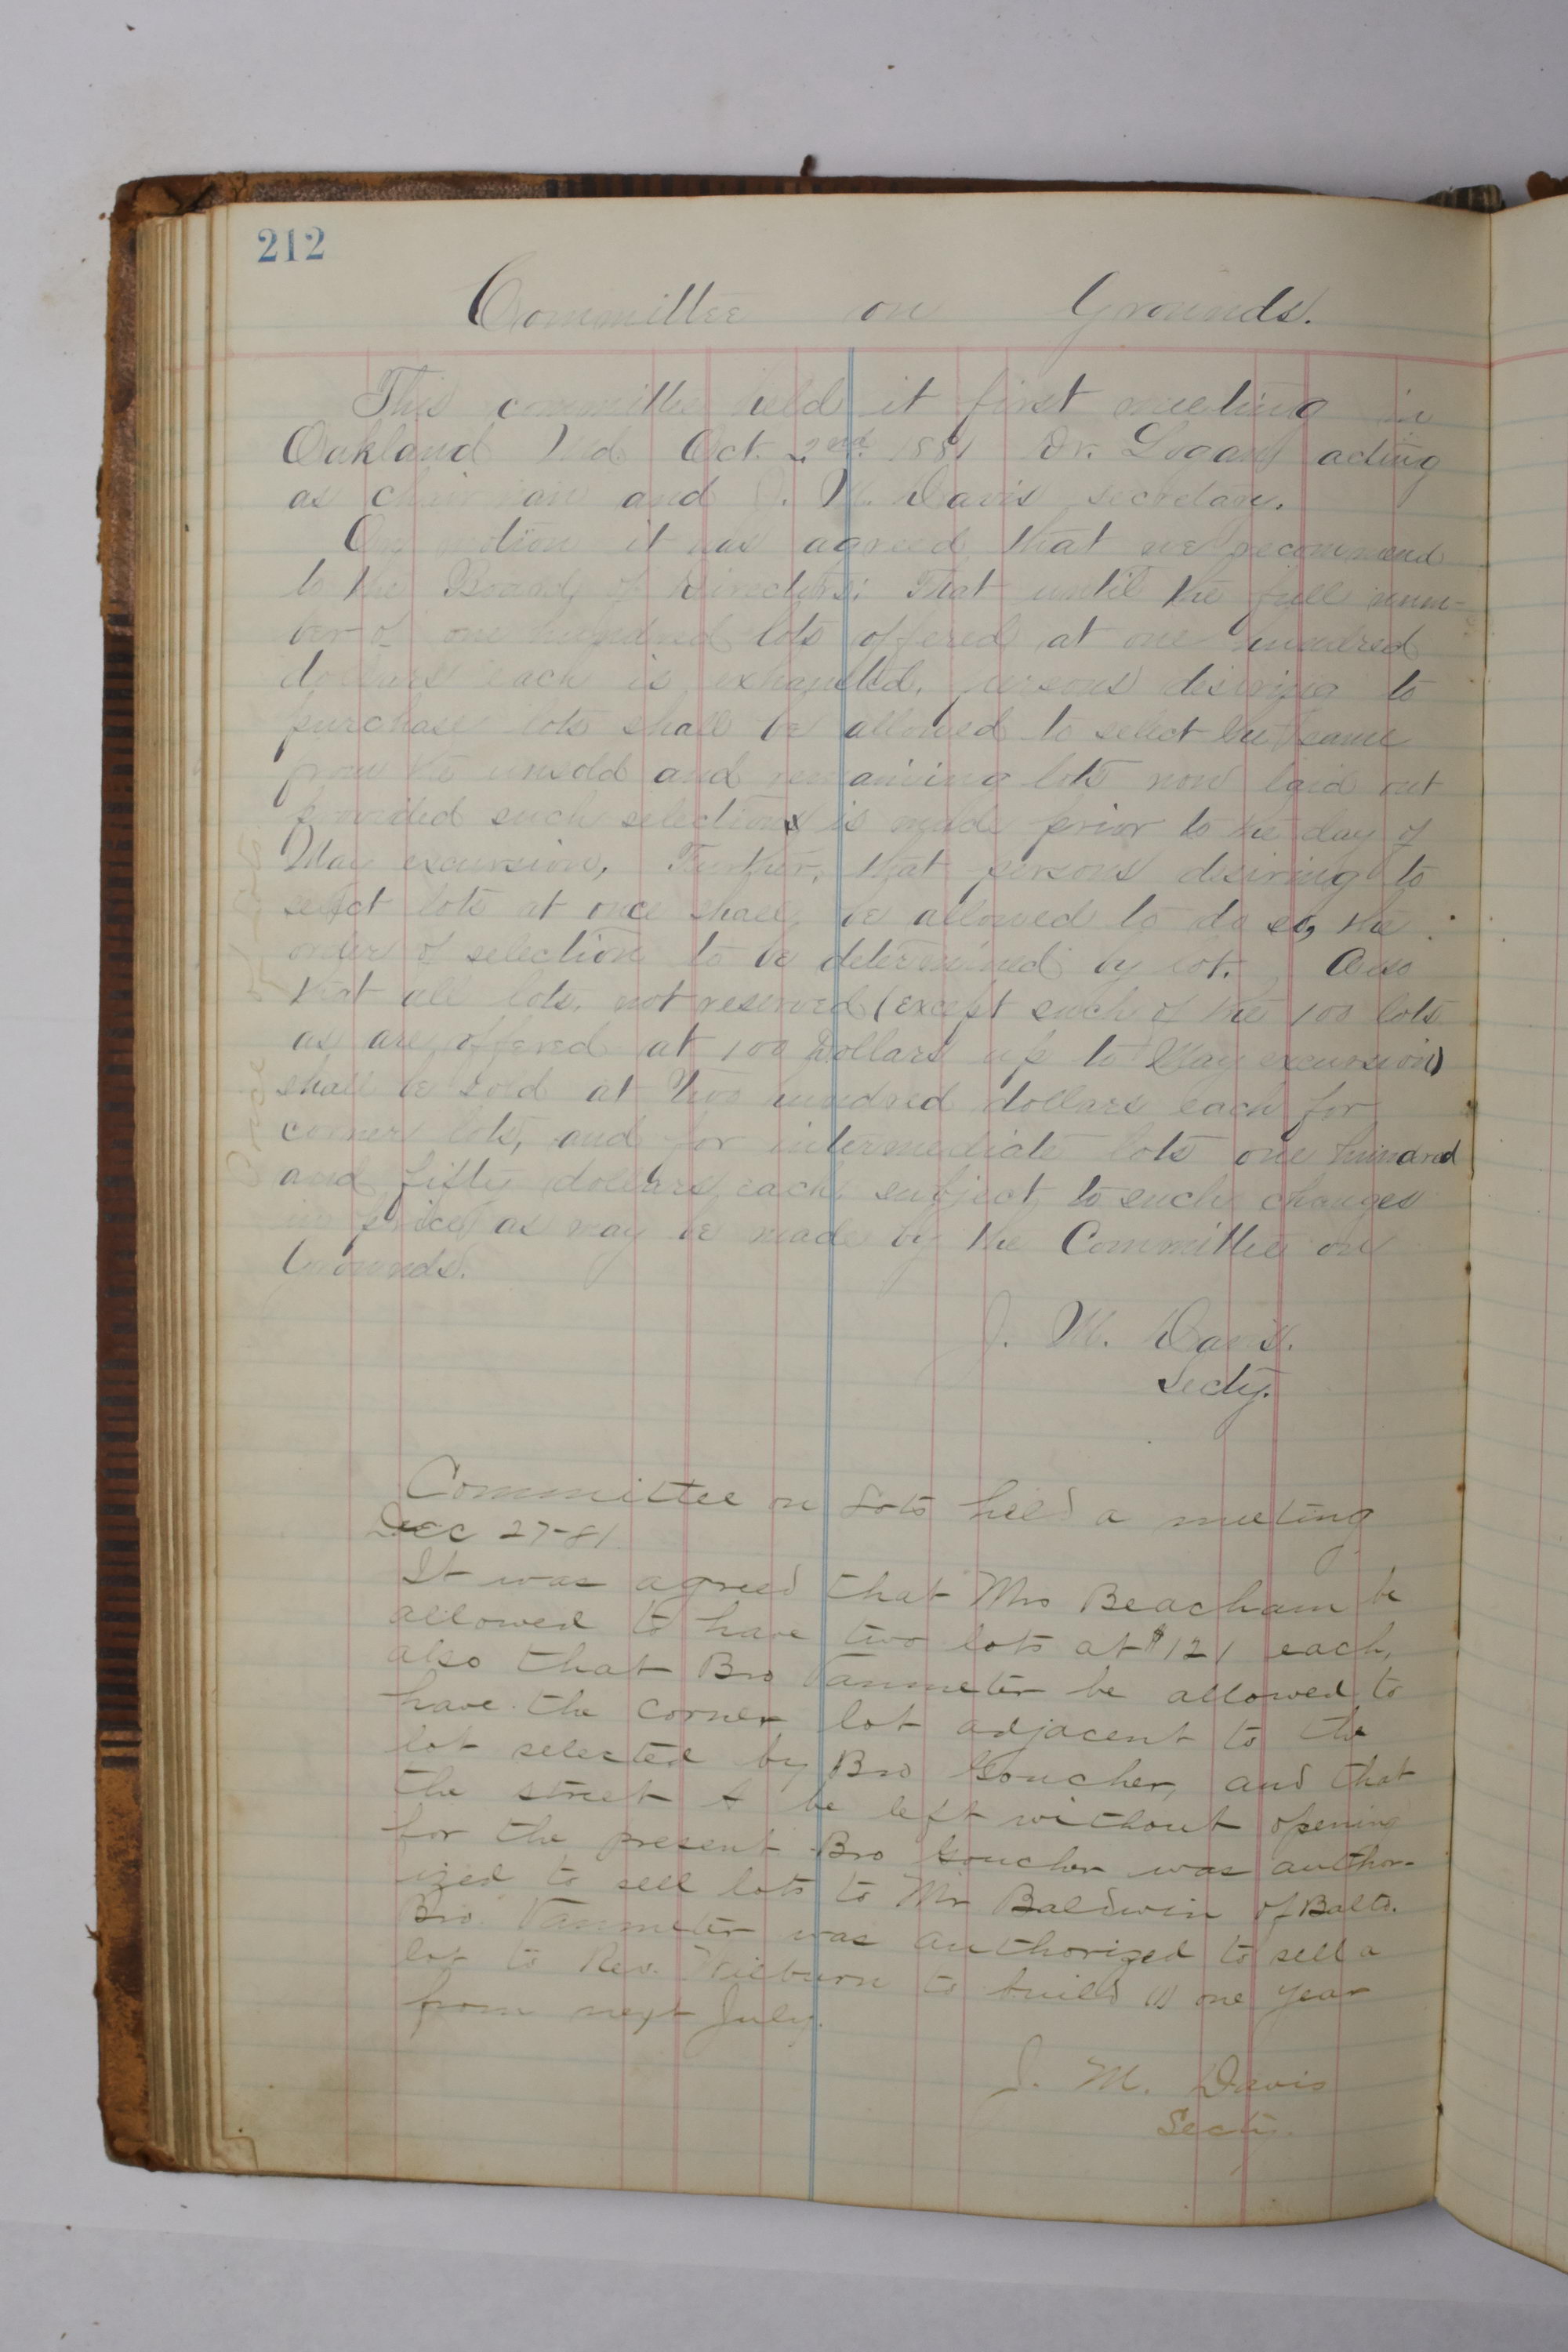 212
Committee on Grounds.
This committee held it first meeting in
Oakland Md Oct. 2nd. 1881 Dr. Logan acting
as chairman and J. M. Davis secretary.
On motion it was agreed that we recommend
to the Board of Directors; That until the full num-
ber of one hundred lots offered at one hundred
dollars each is exhausted, persons desiring to
purchase lots shall be allowed to select the same
from the unsold and remaining lots now laid out
provided such selections is made prior to the day of
May excursion, Further, that persons desiring to
select lots at once shall be allowed to do so, the
order of selection to be determined by lot. Also
that all lots, not reserved (except such of the 100 lots
as are offered at 100 Dollars up to May excursion)
shall be sold at two hundred dollars each for
corner lots, and for intermediate lots one hundred
and fifty dollars each, subject to such changes
in price as may be made by the Committee on
Grounds.
J. M. Davis.
Secty.
Committee on Lots held a meeting
Dec 27-81.
It was agreed that Mrs Beacham be
allowed to have two lots at $121 each,
also that Bro Vanmeter be allowed to
have the corner lot adjacent to the
lot selected by Bro Goucher, and that
the street to be left without opening
for the present Bro Goucher was author-
ized to sell lots to Mr Baldwin of Balto.
Bro Vanmeter was authorized to sell a
lot to Rev. Wilburn to build in one year
from next July.
J. M. Davis
Secty.